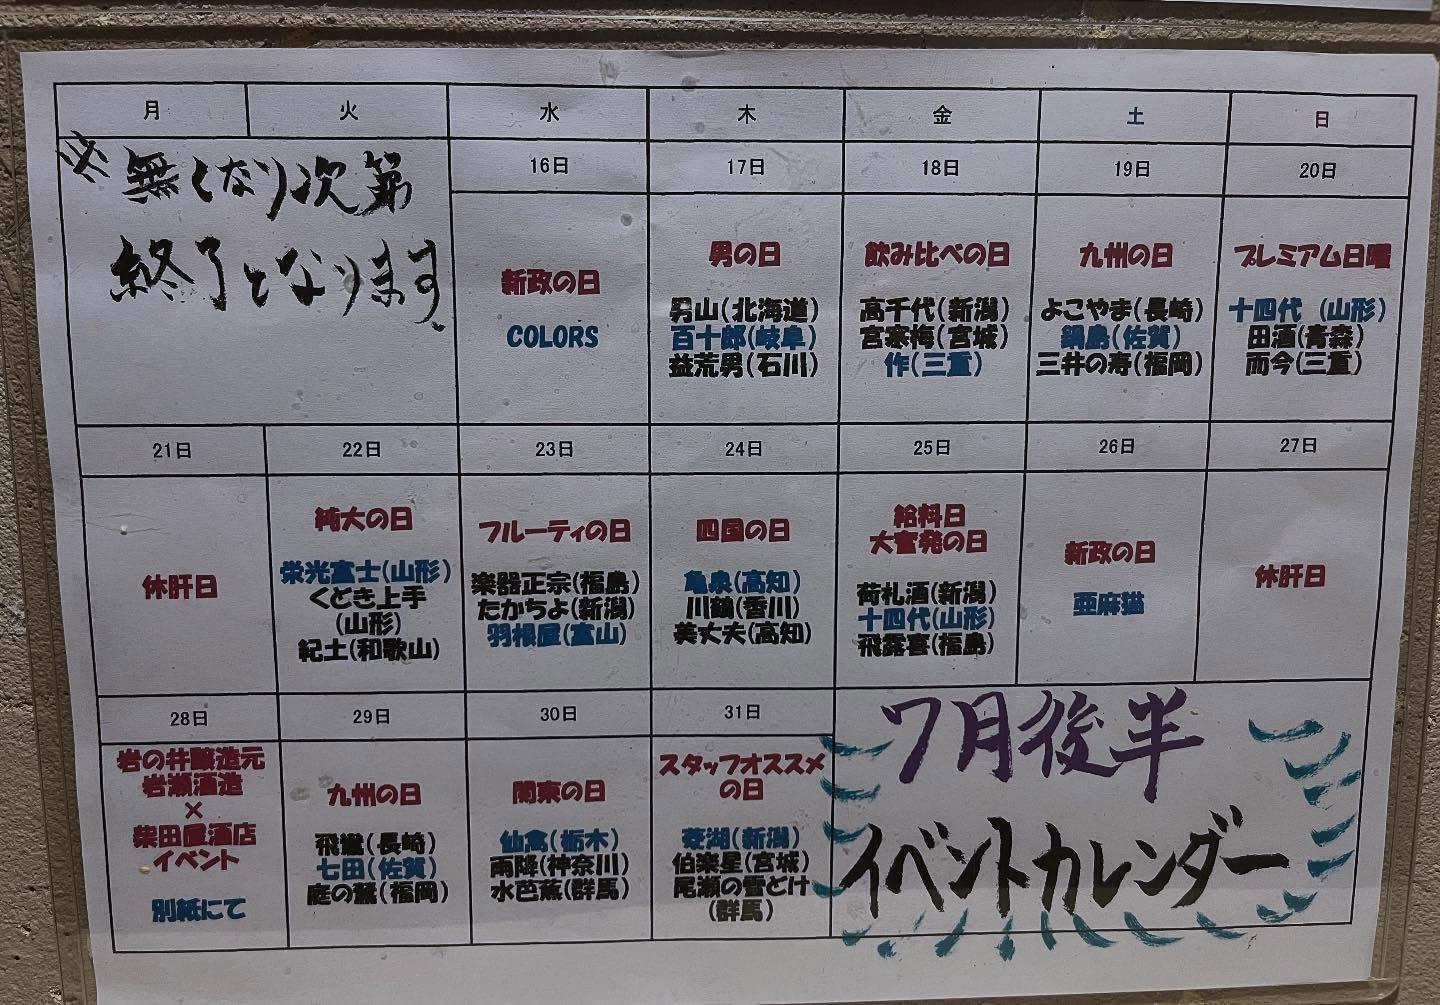 月 火 水 木 金 土 日
※無くなり次第
終了となります.
16日 17日 18日 19日 20日
新政の日
COLORS
男の日
男山(北海道)
百十郎(岐阜)
益荒男(石川)
飲み比べの日
高千代(新潟)
宮寒梅(宮城)
作(三重)
九州の日
よこやま(長崎)
鍋島(佐賀)
三井の寿(福岡)
プレミアム日曜
十四代 (山形)
田酒(青森)
而今(三重)
21日 22日 23日 24日 25日 26日 27日
休肝日
純大の日
栄光冨士(山形)
くどき上手
(山形)
紀土(和歌山)
フルーティの日
楽器正宗(福島)
たかちよ(新潟)
羽根屋(富山)
四国の日
亀泉(高知)
川鶴(香川)
美丈夫(高知)
給料日
大奮発の日
荷札酒(新潟)
十四代(山形)
飛露喜(福島)
新政の日
亜麻猫
休肝日
28日 29日 30日 31日
岩の井醸造元
岩瀬酒造
×
柴田屋酒店
イベント
別紙にて
九州の日
飛鸞(長崎)
七田(佐賀)
庭の鶯(福岡)
関東の日
仙禽(栃木)
雨降(神奈川)
水芭蕉(群馬)
スタッフオススメ
の日
菱湖(新潟)
伯楽星(宮城)
尾瀬の雪どけ
(群馬)
7月後半
イベントカレンダー